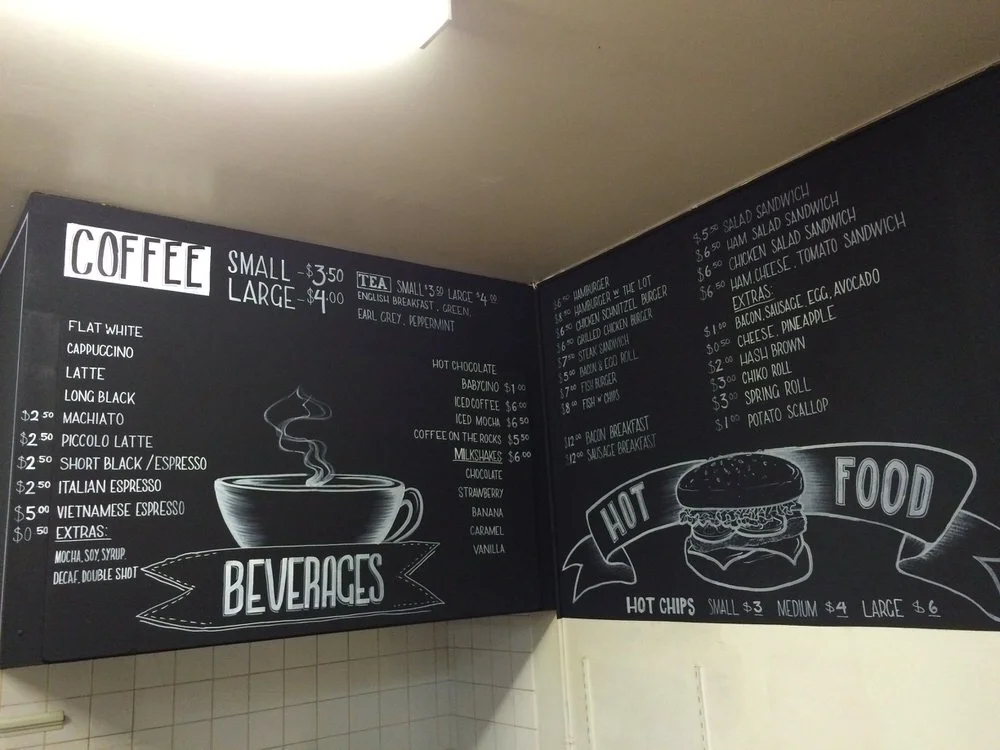 COFFEE
SMALL - $3.50
LARGE - $4.00
TEA SMALL $3.50 LARGE $4.00
ENGLISH BREAKFAST, GREEN,
EARL GREY, PEPPERMINT
FLAT WHITE
CAPPUCCINO
LATTE
LONG BLACK
$2.50 MACHIATO
$2.50 PICCOLO LATTE
$2.50 SHORT BLACK / ESPRESSO
$2.50 ITALIAN ESPRESSO
$5.00 VIETNAMESE ESPRESSO
$0.50 EXTRAS:
MOCHA, SOY, SYRUP.
DECAF, DOUBLE SHOT
HOT CHOCOLATE
BABYCINO $1.00
ICED COFFEE $6.00
ICED MOCHA $6.50
COFFEE ON THE ROCKS $5.50
MILKSHAKES $6.00
CHOCOLATE
STRAWBERRY
BANANA
CARAMEL
VANILLA
BEVERAGES
$6.50 HAMBURGER
$8.50 HAMBURGER W THE LOT
$6.50 CHICKEN SCHNITZEL BURGER
$6.50 GRILLED CHICKEN BURGER
$7.50 STEAK SANDWICH
$5.00 BACON & EGG ROLL
$7.00 FISH BURGER
$8.00 FISH N' CHIPS
$12.00 BACON BREAKFAST
$12.00 SAUSAGE BREAKFAST
$5.50 SALAD SANDWICH
$6.50 HAM SALAD SANDWICH
$6.50 CHICKEN SALAD SANDWICH
$6.50 HAM, CHEESE, TOMATO SANDWICH
EXTRAS:
$1.00 BACON SAUSAGE, EGG, AVOCADO
$0.50 CHEESE, PINEAPPLE
$2.00 HASH BROWN
$3.00 CHIKO ROLL
$3.00 SPRING ROLL
$1.00 POTATO SCALLOP
HOT FOOD
HOT CHIPS SMALL $3 MEDIUM $4 LARGE $6